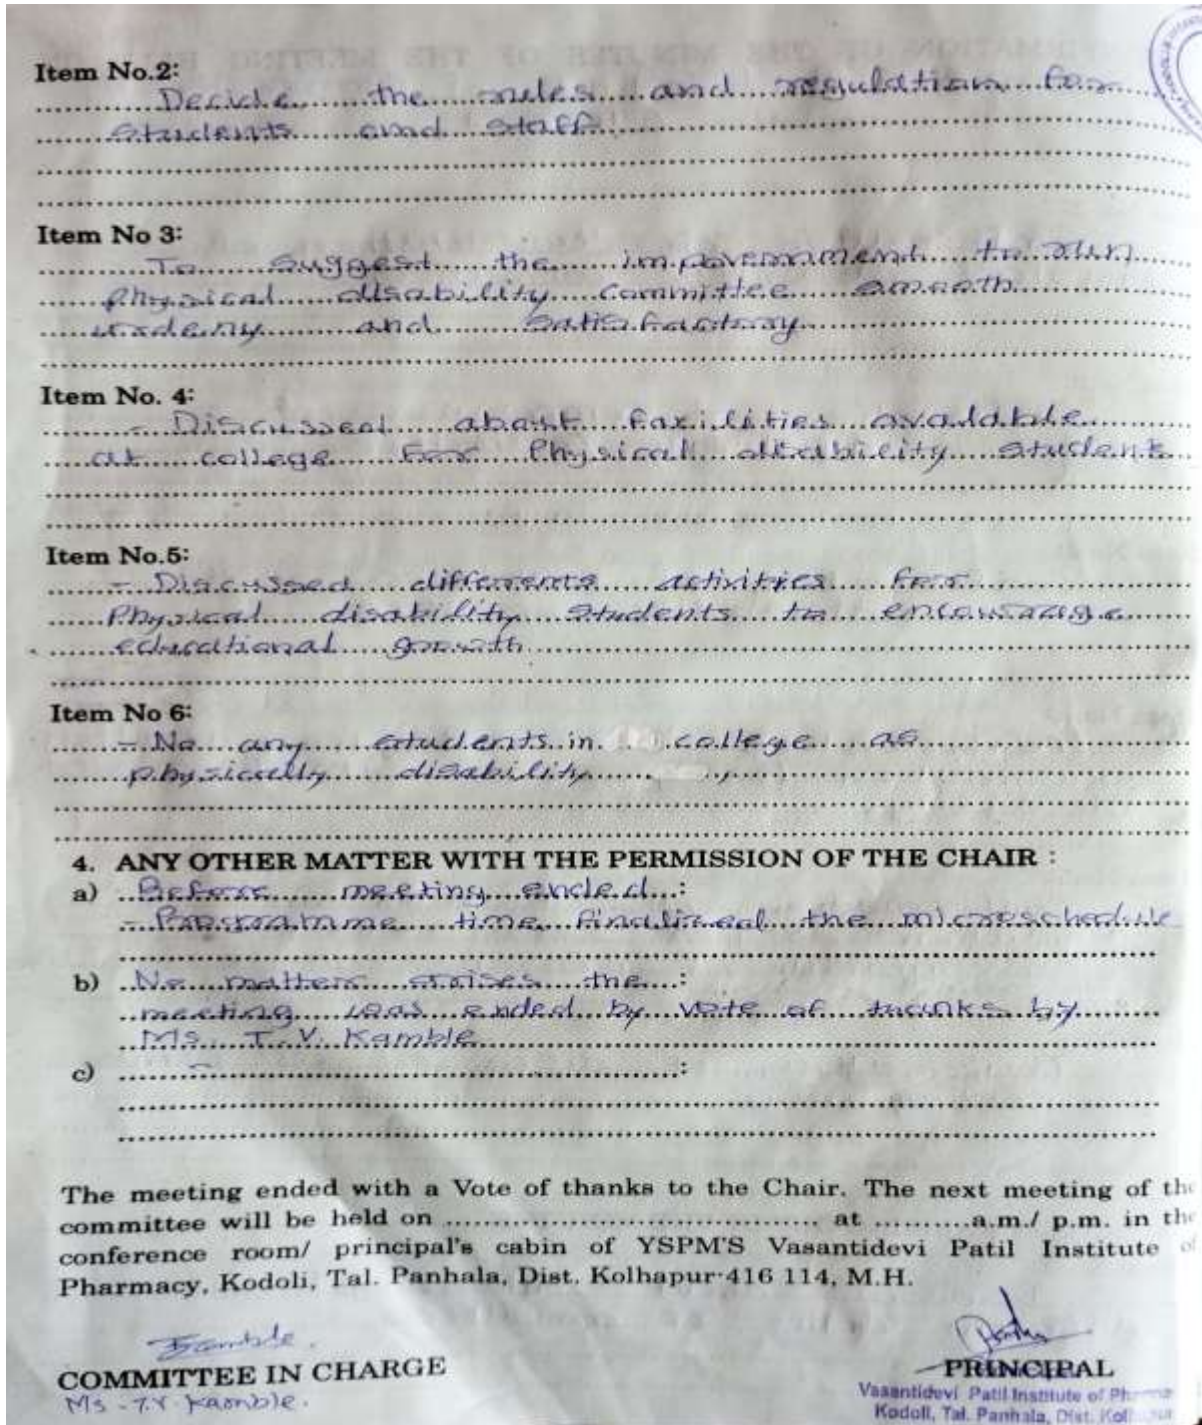 Item No.2:
Decide the rules and regulation for
students and staff
Item No 3:
To suggest the impovernment to run
physical disability committee smooth
and satisfactory
Item No. 4:
- Discussed about facilities available
at college for Physical disability students
Item No.5:
- Discussed differents activities for
Physical disability students to encourage
educational growth
Item No 6:
- No any students in college as
physically disability
4. ANY OTHER MATTER WITH THE PERMISSION OF THE CHAIR :
a) Before meeting ended :
- Programme time finalized the microschedule
b) No matters arises the :
meeting was ended by vote of thanks by
Ms T. V. Kamble
c) - :
The meeting ended with a Vote of thanks to the Chair. The next meeting of the
committee will be held on .......... at ..........a.m./ p.m. in the
conference room/ principal's cabin of YSPM'S Vasantidevi Patil Institute of
Pharmacy, Kodoli, Tal. Panhala, Dist. Kolhapur-416 114, M.H.
COMMITTEE IN CHARGE
Ms - T.V. Kamble.
PRINCIPAL
Vasantidevi Patil Institute of
Kodoli, Tal. Panhala, Dist.